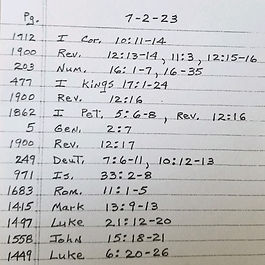 Pg. 7-2-23
1712 I Cor. 10:11-14
1900 Rev. 12:13-14, 11:3, 12:15-16
203 Num. 16:1-7, 16-35
477 I Kings 17:1-24
1900 Rev. 12:16
1862 I Pet. 5:6-8, Rev. 12:16
5 Gen. 2:7
1900 Rev. 12:17
249 Deut. 7:6-11, 10:12-13
971 Is. 33:2-8
1683 Rom. 11:1-5
1415 Mark 13:9-13
1497 Luke 21:12-20
1558 John 15:18-21
1449 Luke 6:20-26